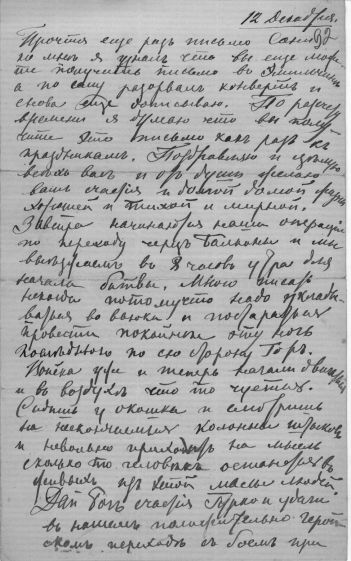 12 Декабря.
Прочтя еще разъ письмо Саши
ко мнѣ я узналъ что вы еще може
те получить письмо во
а по сему разорвалъ конвертъ и
снова еще дописываю. По разсчету
времени я думаю что вы полу
чите это письмо какъ разъ къ
праздникамъ. Поздравляю и цѣлую
всѣхъ васъ и отъ души желаю
вамъ счастія и долгой домой жизни
хорошей и тихой и мирной.
Завтра начинаются наши операціи
по переходу черезъ Балканы и мы
выѣзжаемъ въ 8 часовъ утра для
начала битвы. Много писать
некогда потому что надо укладывать
ся во вьюки и постараться
провести покойнѣе эту ночь
последнюю по сю сторону Горъ.
Войска уже и теперь начали движеніе
и въ воздухѣ что то чуется.
Сидишь у окошка и смотришь
на нескончаемыя колонны штыковъ
и невольно приходитъ на мысль
сколько то человѣкъ останется въ
живыхъ изъ этой массы людей.
Дай Богъ счастія Гурко и удачи
въ нашемъ положительно герой
скомъ переходѣ съ боемъ при